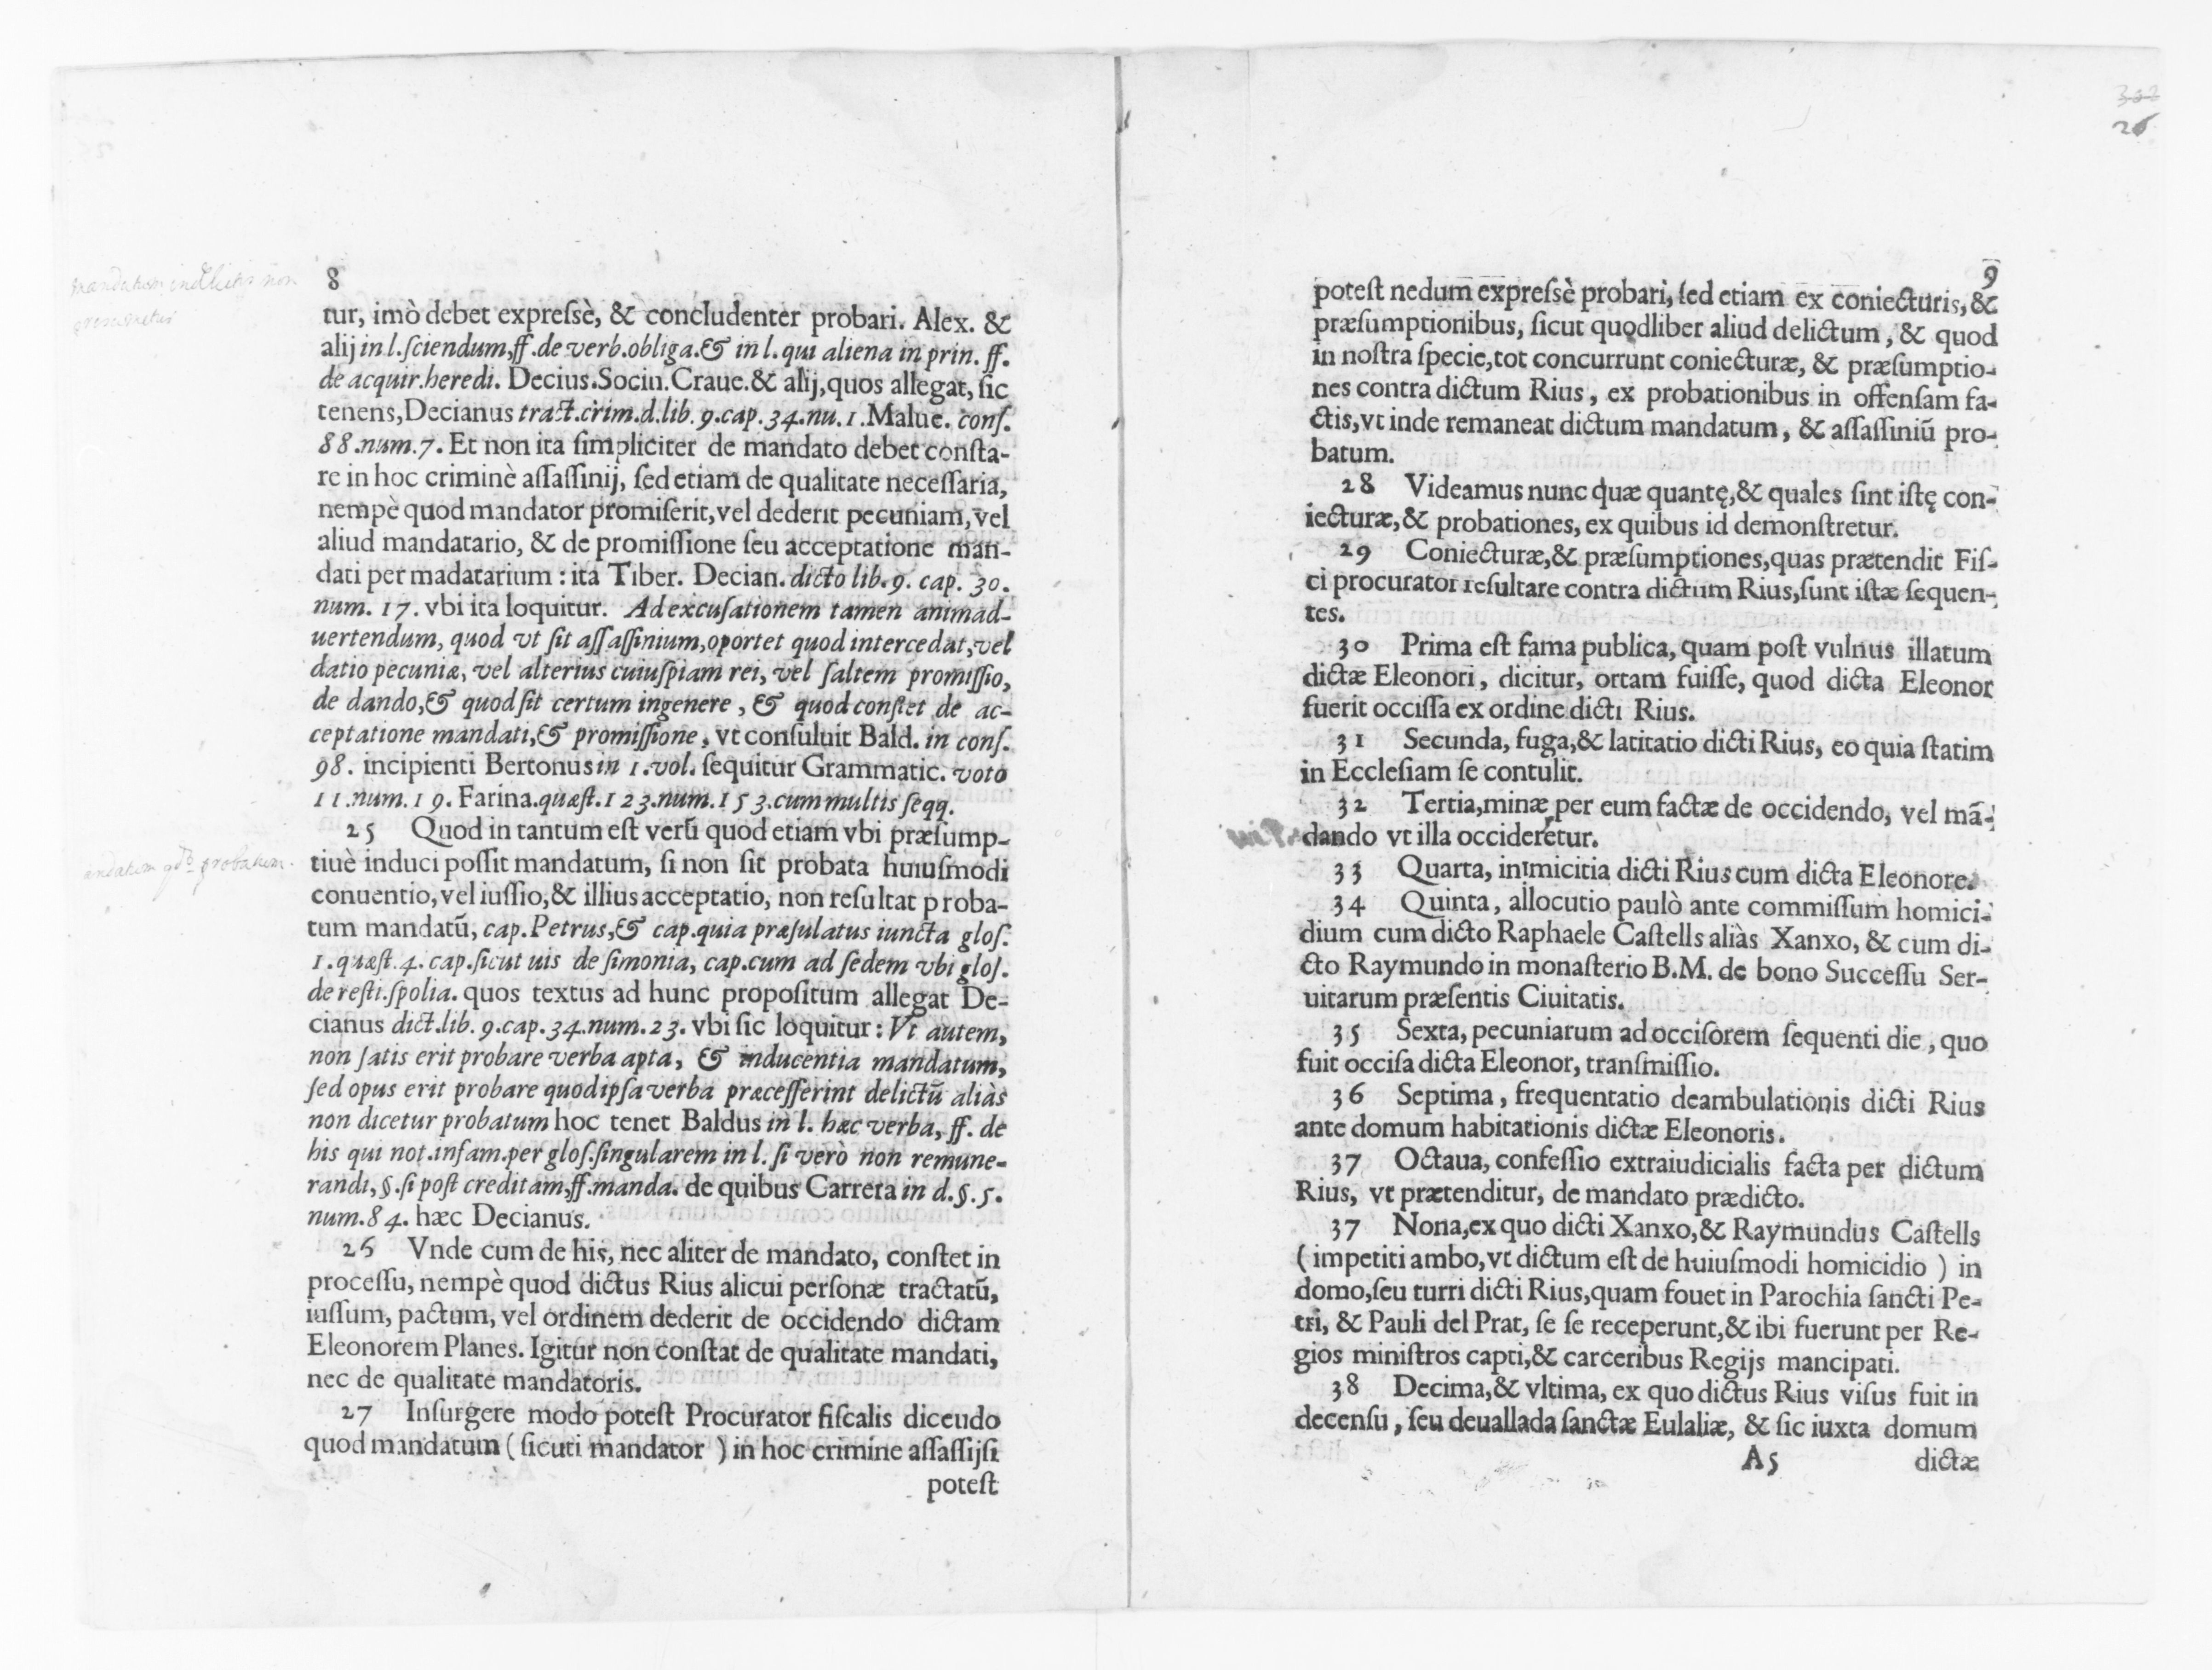 8
tur, imò debet expreſsè, & concludenter probari. Alex. &
alij in l.ſciendum,ff.de verb.obliga.& in l. qui aliena in prin. ff.
de acquir.heredi. Decius.Socin.Craue.& alij,quos allegat, ſic
tenens,Decianus tract.crim.d.lib.9.cap.34.nu.1.Malue. conſ.
88.num.7. Et non ita ſimpliciter de mandato debet conſta-
re in hoc criminè aſſaſſinij, ſed etiam de qualitate neceſſaria,
nempè quod mandator promiſerit,vel dederit pecuniam,vel
aliud mandatario, & de promiſſione ſeu acceptatione man-
dati per madatarium : ita Tiber. Decian. dicto lib.9. cap. 30.
num. 17. vbi ita loquitur. Ad excuſationem tamen animad-
uertendum, quod vt ſit aſſaſſinium,oportet quod intercedat,vel
datio pecuniæ, vel alterius cuiuſpiam rei, vel ſaltem promiſſio,
de dando,& quod ſit certum ingenere , & quod conſtet de ac-
ceptatione mandati,& promiſſione , vt conſuluit Bald. in conſ.
98. incipienti Bertonus in 1.vol. ſequitur Grammatic. voto
11.num.19. Farina.quæſt.123.num.153.cum multis ſeqq.
25 Quod in tantum eſt verũ quod etiam vbi præſump-
tiuè induci poſſit mandatum, ſi non ſit probata huiuſmodi
conuentio, vel iuſſio,& illius acceptatio, non reſultat proba-
tum mandatũ, cap.Petrus,& cap.quia præſulatus iuncta gloſ.
1.quæſt.4. cap.ſicut uis de ſimonia, cap.cum ad ſedem vbi gloſ.
de reſti.ſpolia. quos textus ad hunc propoſitum allegat De-
cianus dict.lib. 9.cap.34.num.23. vbi ſic loquitur : Vt autem,
non ſatis erit probare verba apta, & inducentia mandatum,
ſed opus erit probare quod ipſa verba præceſſerint delictũ aliàs
non dicetur probatum hoc tenet Baldus in l. hæc verba, ff. de
his qui not.infam.per gloſ.ſingularem in l. ſi verò non remune-
randi, §.ſi poſt creditam,ff.manda. de quibus Carrera in d.§.5.
num.84. hæc Decianus.
26 Vnde cum de his, nec aliter de mandato, conſtet in
proceſſu, nempè quod dictus Rius alicui perſonæ tractatũ,
iuſſum, pactum, vel ordinem dederit de occidendo dictam
Eleonorem Planes. Igitur non conſtat de qualitate mandati,
nec de qualitate mandatoris.
27 Inſurgere modo poteſt Procurator fiſcalis diceudo
quod mandatum ( ſicuti mandator ) in hoc crimine aſſaſſijſi
poteſt
26
9
poteſt nedum expreſsè probari, ſed etiam ex coniecturis, &
præſumptionibus, ſicut quodliber aliud delictum , & quod
in noſtra ſpecie,tot concurrunt coniecturæ, & præſumptio-
nes contra dictum Rius , ex probationibus in offenſam fa-
ctis,vt inde remaneat dictum mandatum , & aſſaſſiniũ pro-
batum.
28 Videamus nunc quæ quantę,& quales ſint iſtę con-
iecturæ,& probationes, ex quibus id demonſtretur.
29 Coniecturæ,& præſumptiones,quas prætendit Fiſ-
ci procurator reſultare contra dictum Rius,ſunt iſtæ ſequen-
tes.
30 Prima eſt fama publica, quam poſt vulnus illatum
dictæ Eleonori , dicitur, ortam fuiſſe, quod dicta Eleonor
fuerit occiſſa ex ordine dicti Rius.
31 Secunda, fuga,& latitatio dicti Rius, eo quia ſtatim
in Eccleſiam ſe contulit.
32 Tertia,minæ per eum factæ de occidendo, vel mã-
dando vt illa occideretur.
33 Quarta, inimicitia dicti Rius cum dicta Eleonore.
34 Quinta , allocutio paulò ante commiſſum homici-
dium cum dicto Raphaele Caſtells aliàs Xanxo, & cum di-
cto Raymundo in monaſterio B.M. de bono Succeſſu Ser-
uitarum præſentis Ciuitatis.
35 Sexta, pecuniarum ad occiſorem ſequenti die , quo
fuit occiſa dicta Eleonor, tranſmiſſio.
36 Septima , frequentatio deambulationis dicti Rius
ante domum habitationis dictæ Eleonoris.
37 Octaua, confeſſio extraiudicialis facta per dictum
Rius, vt prætenditur, de mandato prædicto.
37 Nona,ex quo dicti Xanxo,& Raymundus Caſtells
( impetiti ambo,vt dictum eſt de huiuſmodi homicidio ) in
domo,ſeu turri dicti Rius,quam fouet in Parochia ſancti Pe-
tri, & Pauli del Prat, ſe ſe receperunt,& ibi fuerunt per Re-
gios miniſtros capti,& carceribus Regijs mancipati.
38 Decima,& vltima, ex quo dictus Rius viſus fuit in
decenſu , ſeu deuallada ſanctæ Eulaliæ, & ſic iuxta domum
A5 dictæ